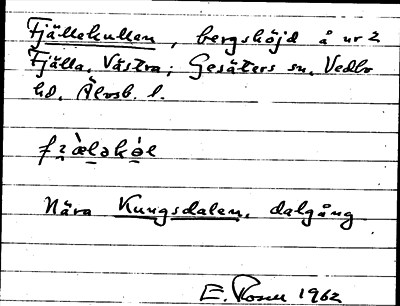 Fjällekullen, bergshöjd å nr 2
Fjälla, Västra; Gesäters sn, Vedbo
hd, Älvsb. l.
Nära Kungsdalen, dalgång
E. 1962